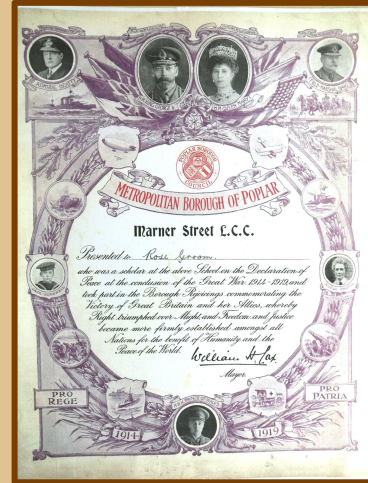 POPLAR BOROUGH
COUNCIL
METROPOLITAN BOROUGH OF POPLAR
Marner Street L.C.C.
Presented to Rose Groom
who was a scholar at the above School on the Declaration of
Peace at the conclusion of the Great War, 1914-1919, and
took part in the Borough Rejoicings commemorating the
Victory of Great Britain and her Allies, whereby
Right triumphed over Might, and Freedom and Justice
became more firmly established amongst all
Nations for the benefit of Humanity and the
Peace of the World.
William H Lax
Mayor.
PRO
REGE
PRO
PATRIA
1914
1919